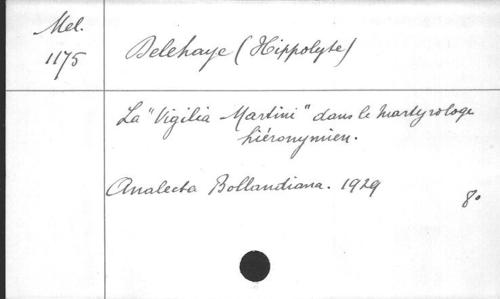 Mel.
1175
Delehaye (Hippolyte)
La "Vigilia Martini" dans le martyrologe
hiéronymien.
Analecta Bollandiana. 1929
8°